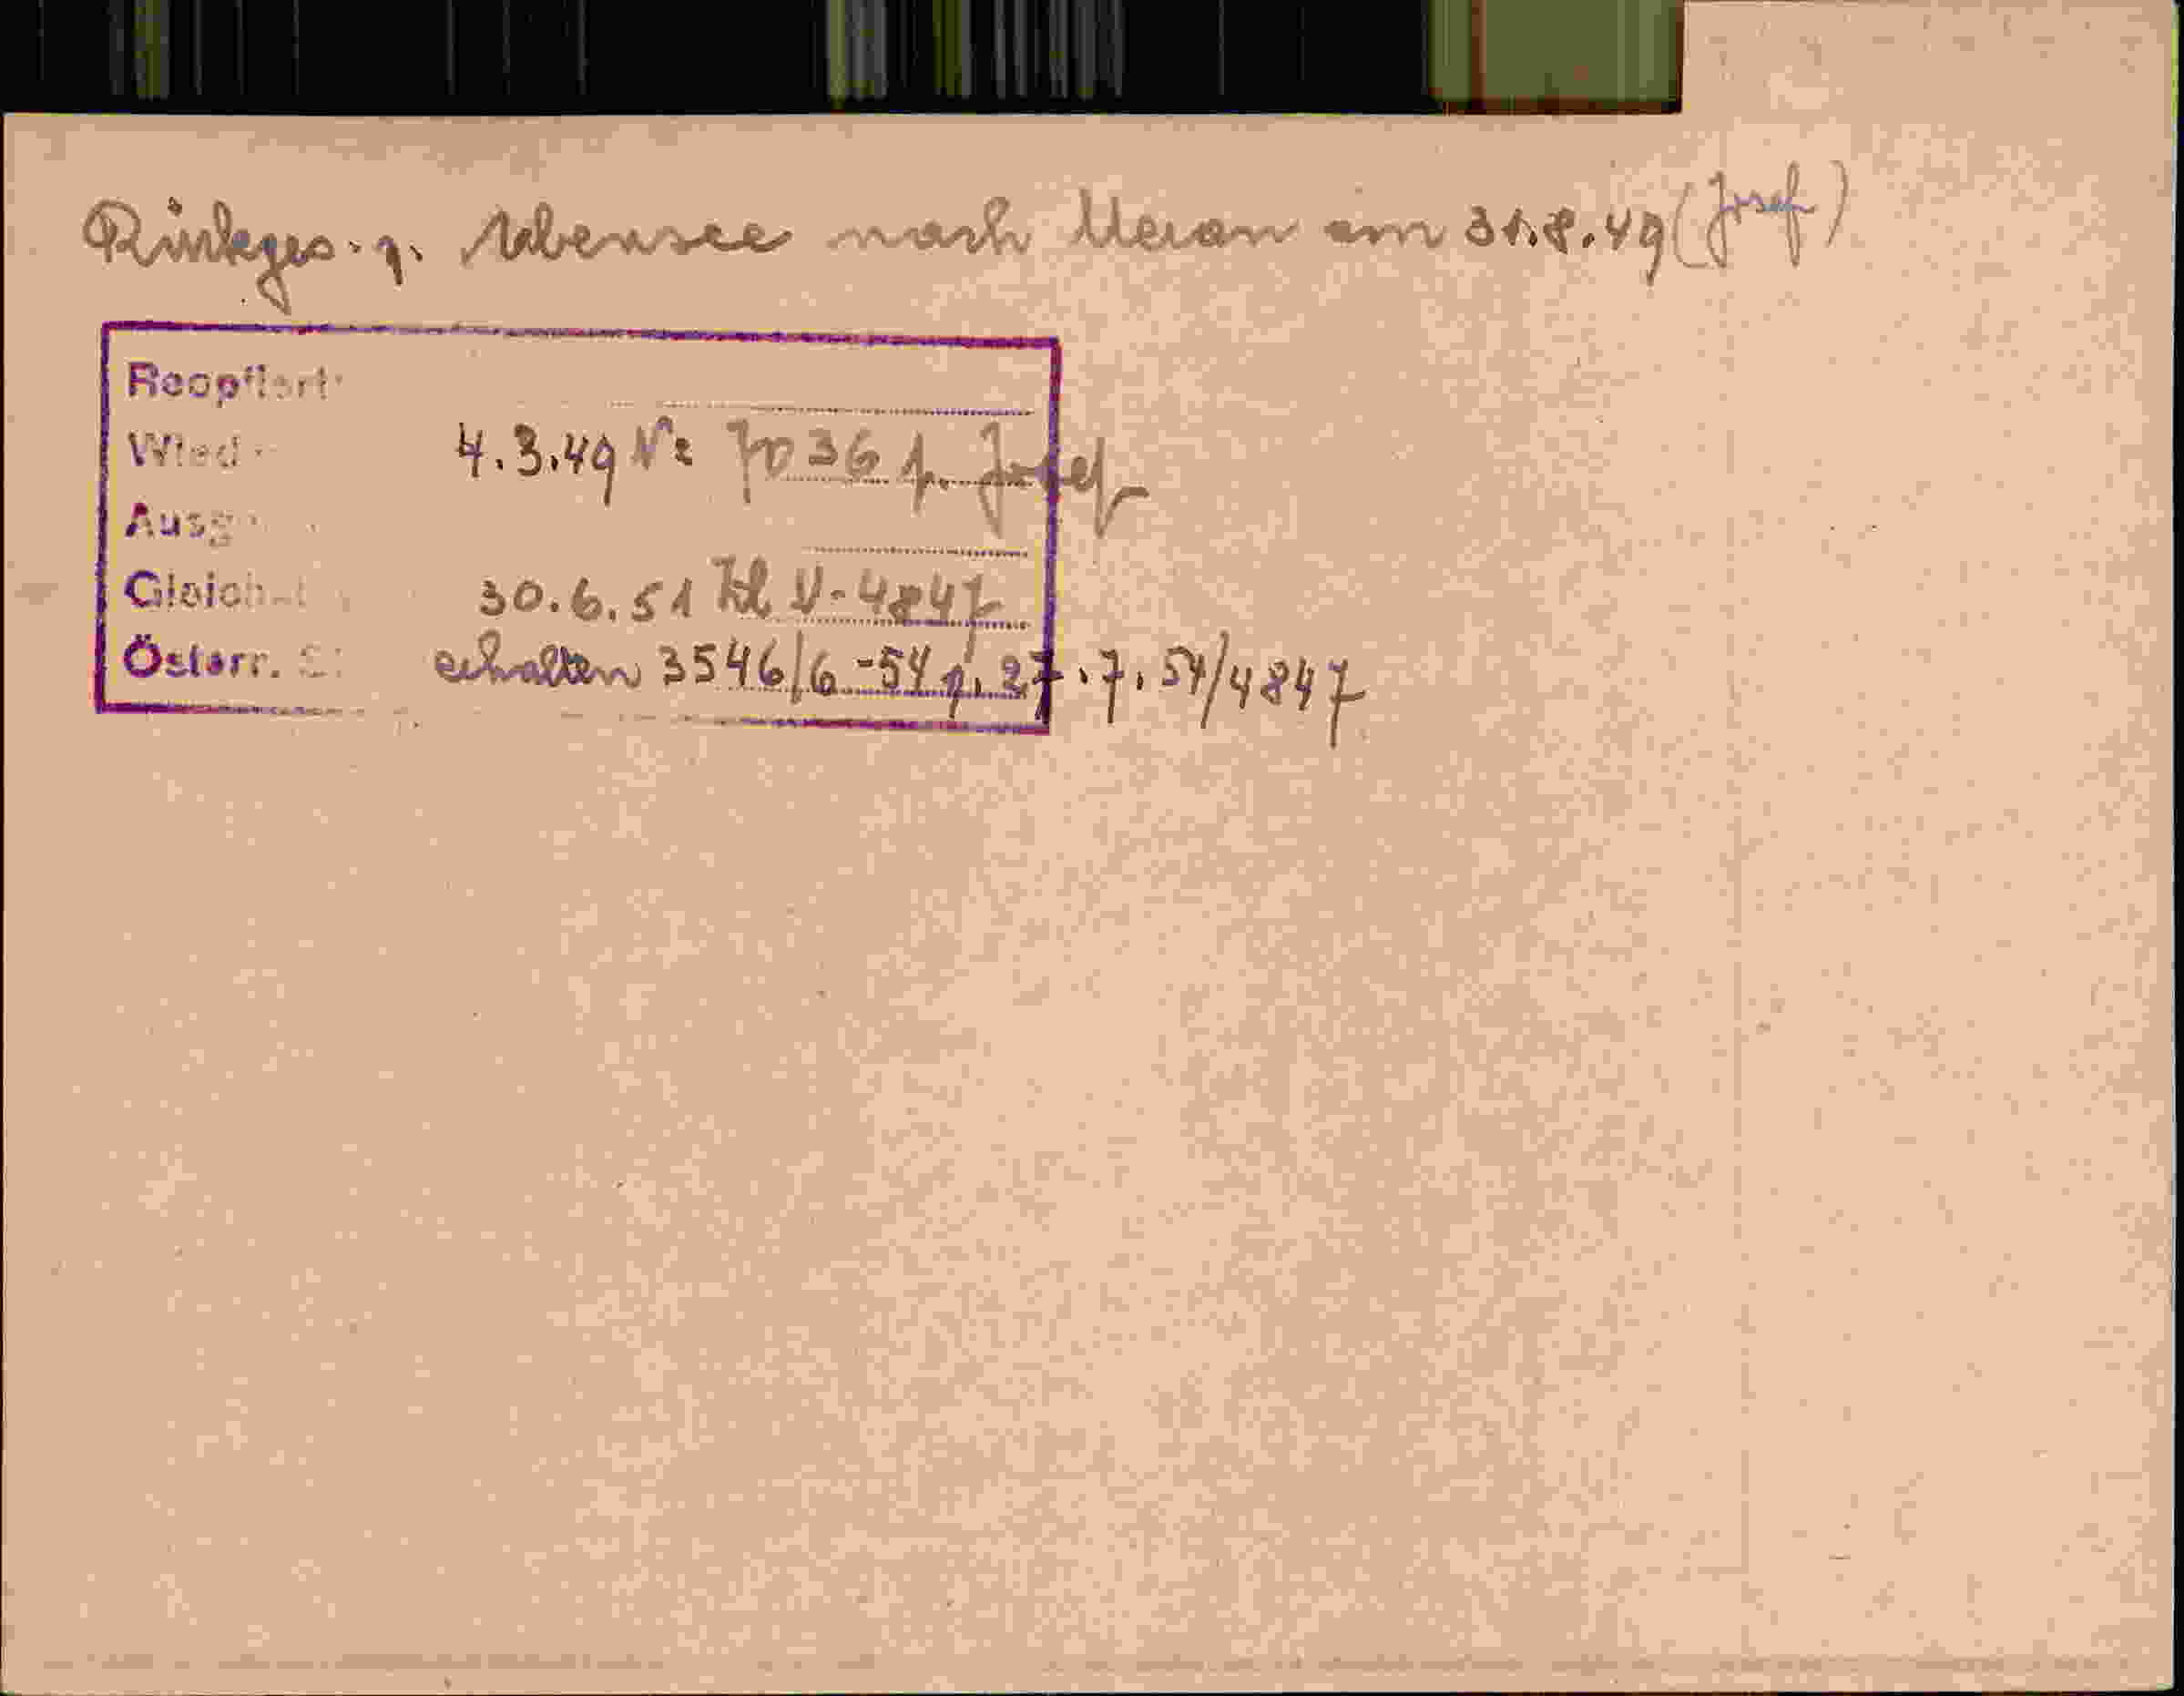 Rückges. v. Ebensee nach Meran am 31.8.49 (Josef)
Reoptiert
Wied
4.3.49 Nr 7036 f. Josef
Ausg
Gleich
30.6.51 Kl V-4847
Österr. St
erhalten 3546/6-54 v. 27.7.54/4847